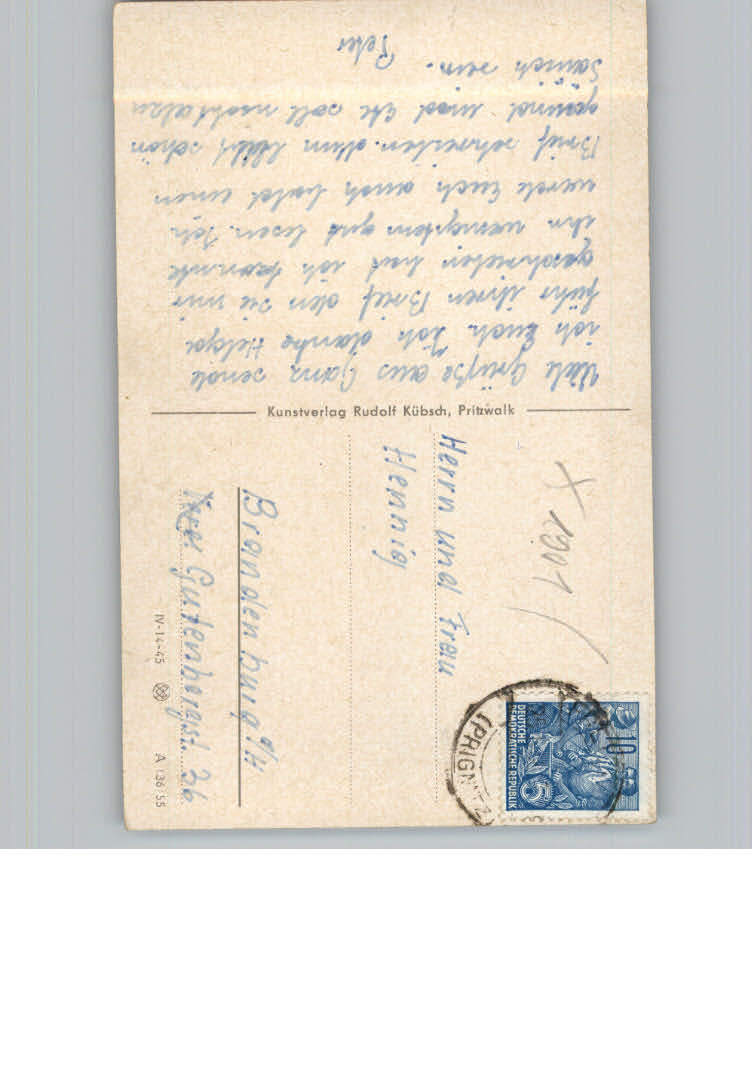 Viele Grüße aus Ganz sende
ich Euch. Ich danke Helga
führ ihren Brief den sie mir
geschrieben hat ich konnte
ihn wenigstem gut lesen. Ich
werde Euch auch bald einen
Brief schreiben. Nun bleibt schön
gesund und Ete soll nicht alzu
Sein.
Peter
Kunstverlag Rudolf Kübsch, Pritzwalk
X 1901
Herrn und Frau
Hennig
Brandenburg a/H
Gutenbergst. 36
IV-14-45
A 136/55
10
DEUTSCHE
DEMOKRATISCHE REPUBLIK
(PRIGNITZ)